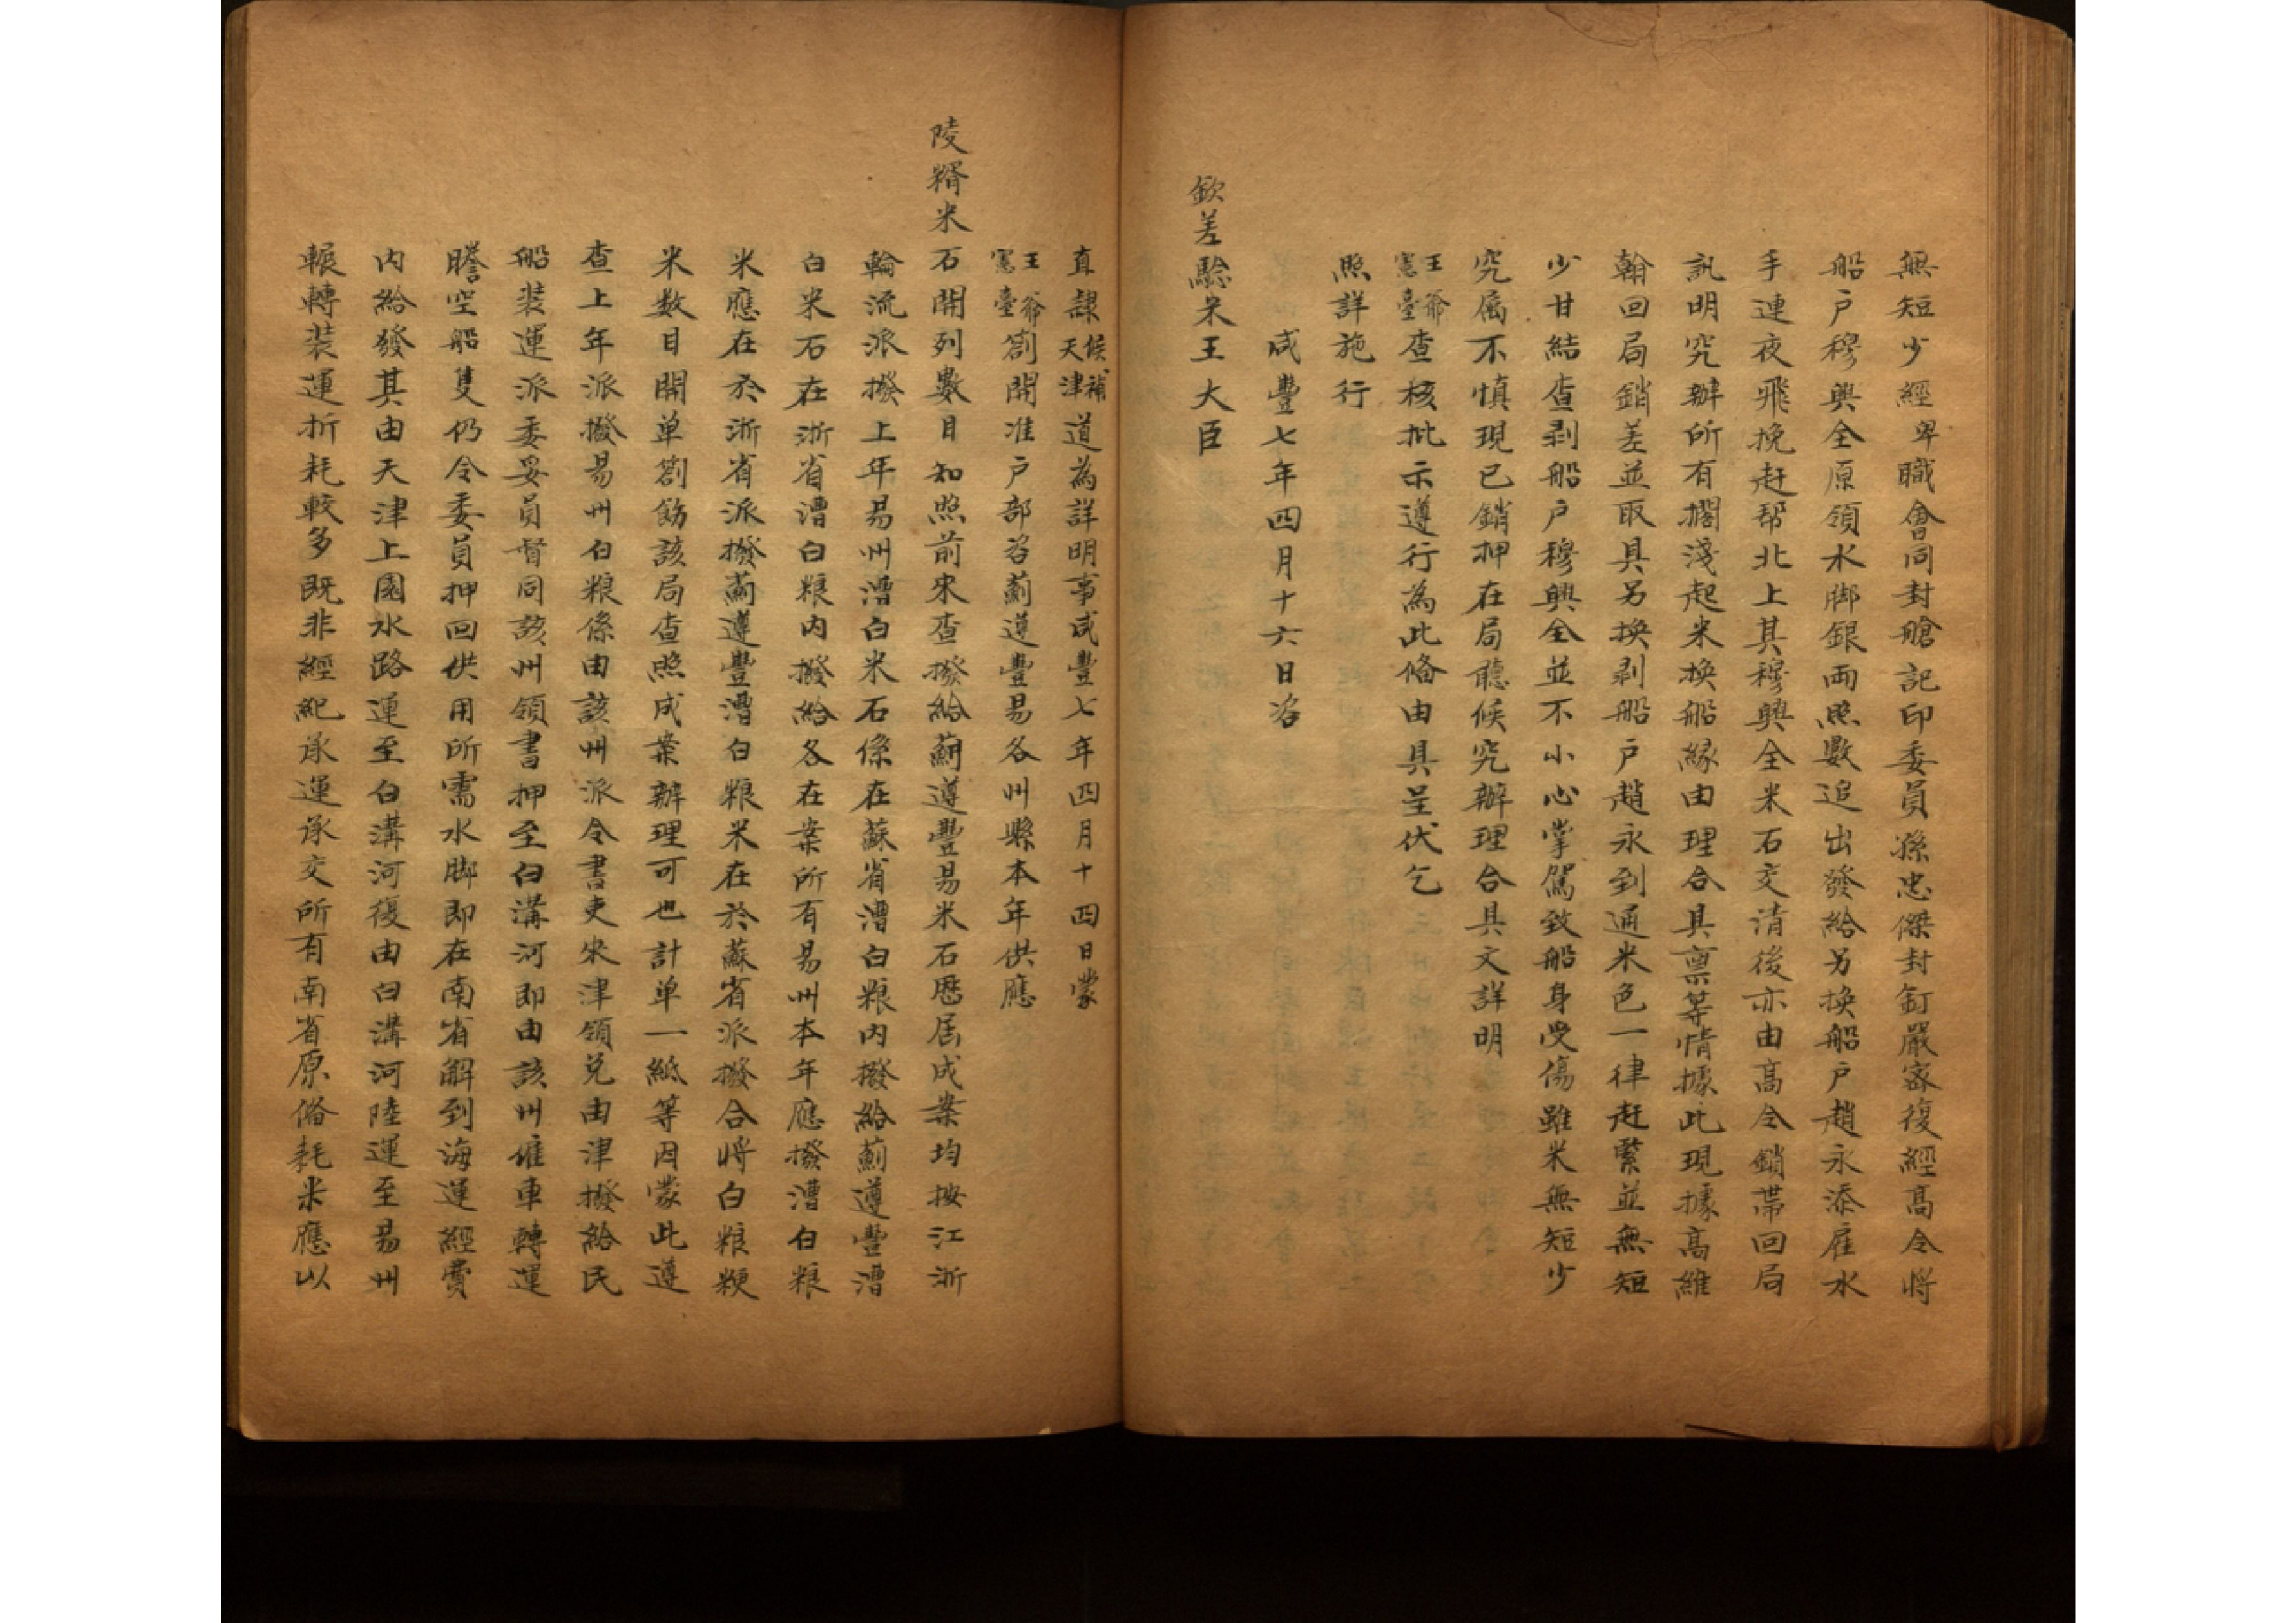 無短少經卑職會同封艙記印委員孫忠傑封釘嚴密復經高令將
船户穆興全原領水脚銀両照數追出發給另換船户趙永添雇水
手連夜飛挽赶帮北上其穆興全米石交清後亦由高令鎖帶回局
訊明究辦所有擱淺起米換船緣由理合具禀等情據此現據高維
翰回局銷差並取具另換剥船户趙永到通米色一律赶緊並無短
少甘結查剥船户穆興全並不小心掌駕致船身受傷雖米無短少
究属不慎現已鎖押在局聽候究辦理合具文詳明
王爺憲臺查核批示遵行為此脩由具呈伏乞
照詳施行
咸豐七年四月十六日咨
欽差驗米王大臣
直隸候補天津道為詳明事咸豐七年四月十四日蒙
王爺憲臺劄開准户部咨薊遵豐易各州縣本年供應
陵糈米石開列數目知照前來查撥給薊遵豐易米石歷届成案均按江浙
輪流派撥上年易州漕白米石係在蘇省漕白粮内撥給薊遵豐漕
白米石在浙省漕白粮内撥給各在案所有易州本年應撥漕白粮
米應在於浙省派撥薊遵豐漕白粮米在於蘇省派撥合將白粮粳
米数目開单劄飭該局查照成案辦理可也計单一紙等因蒙此遵
查上年派撥易州白粮係由該州派令書吏來津領兑由津撥給民
船装運派委妥員督同該州領書押至白溝河即由該州僱車轉運
謄空船隻仍令委員押回供用所需水脚即在南省解到海運經費
内給發其由天津上園水路運至白溝河復由白溝河陸運至易州
輾轉装運折耗較多既非經紀承運承交所有南省原俻耗米應以